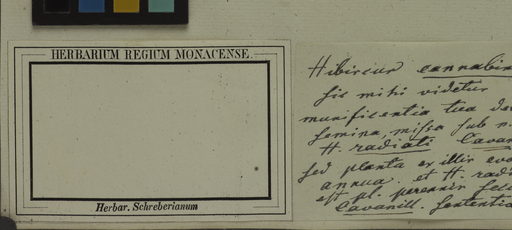 HERBARIUM REGIUM MONACENSE.
Herbar. Schreberianum
Hibiscus cannabin
sic mihi videtur
munificentia tua
semina, missa sub n.
H. radiati Cavan
sed planta ex illis
annua et H. radi
est pl. perennis
Cavanill. sententia